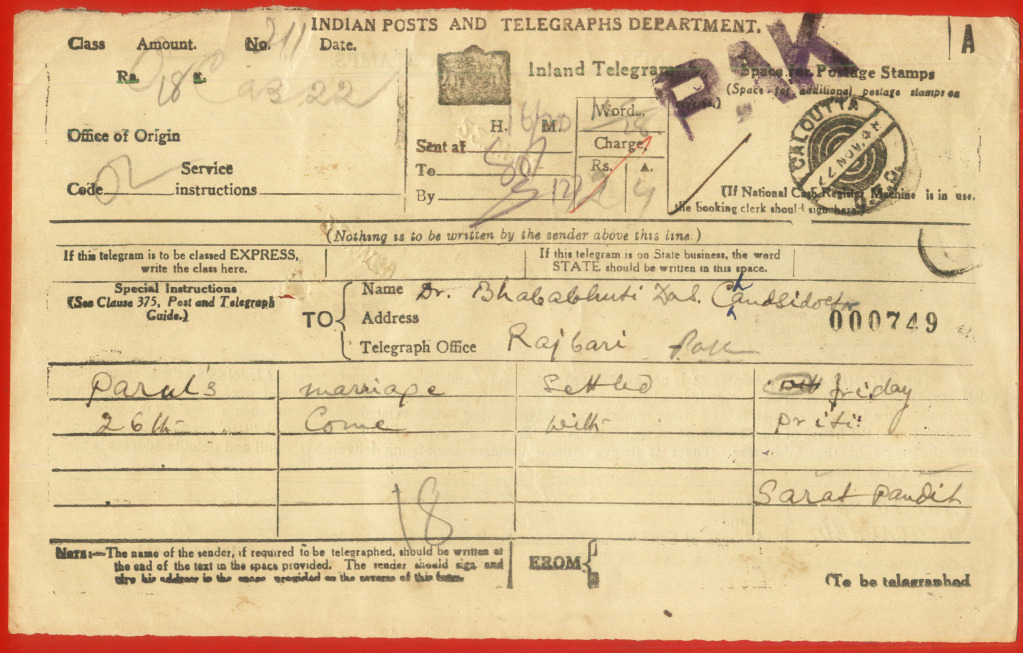 INDIAN POSTS AND TELEGRAPHS DEPARTMENT.
Class Amount. No. 211 Date.
A
PAK
Rs.
18 2322
Inland Telegram
Space for Postage Stamps
(Space for additional postage stamps on
CALCUTTA
NOV. 48
Office of Origin
H. M.
Words.
18
Sent at
Charge,
Service
To
Rs. A.
Code instructions
By
(If National Cash Register Machine is in use,
the booking clerk should sign here.)
(Nothing is to be written by the sender above this line.)
If this telegram is to be classed EXPRESS,
write the class here.
If this telegram is on State business, the word
STATE should be written in this space.
Special Instructions
(See Clause 375, Post and Telegraph
Guide.)
TO
Name Dr. Bhababhuti Das.
Address
000749
Telegraph Office Rajbari Pak
Parul's marriage settled friday
26th Come with Priti
Sarat Pandit
18
NOTE:—The name of the sender, if required to be telegraphed, should be written at
the end of the text in the space provided. The sender should sign and
give his address in the space provided on the reverse of this form.
FROM
(To be telegraphed